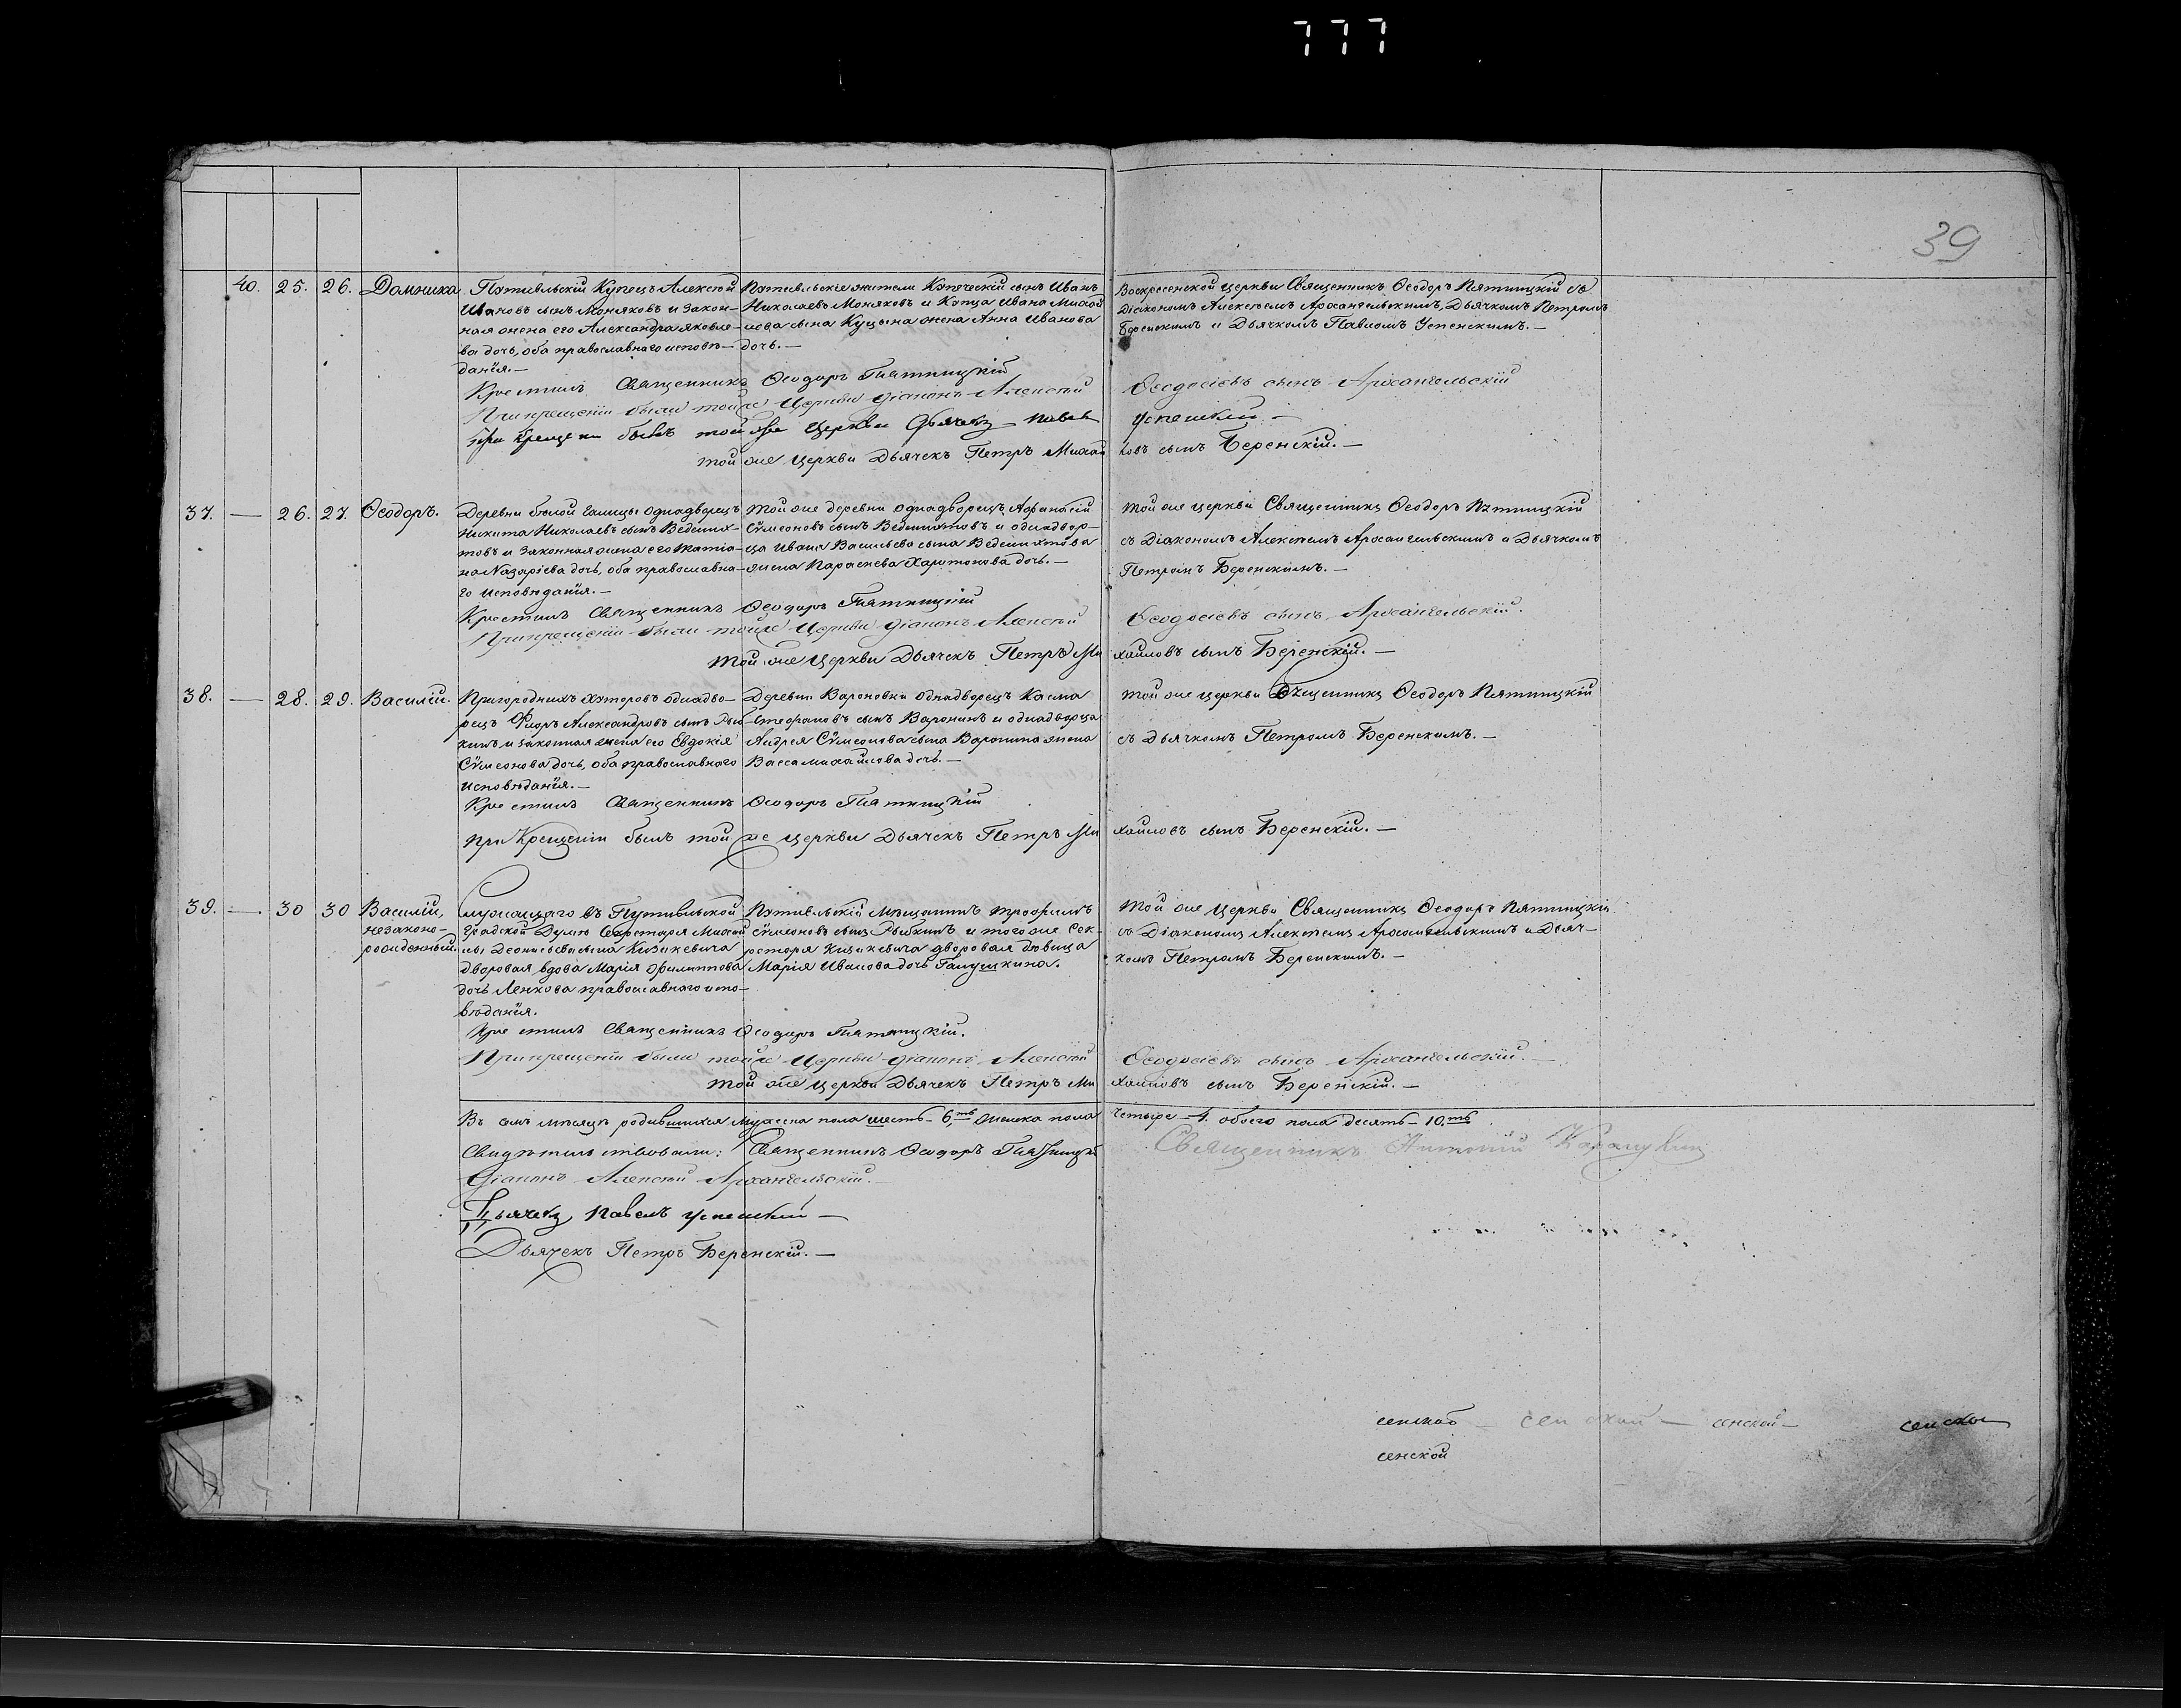 777
39
40. 25. 26. Домника
Путивльскій Купецъ Алексѣй
Ивановъ сынъ Моняковъ и закон-
ная жена его Александра Яковле-
ва дочь, оба православнаго исповѣ-
данія.—
Путивльскіе жители Купеческій сынъ Иванъ
Николаевъ Моняковъ и Купца Ивана Михай
лова сына Куцына жена Анна Иванова
дочь.—
Воскресенской церкви Священникъ Ѳеодоръ Пятницкій съ
Діакономъ Алексѣемъ Архангельскимъ, Дьячкомъ Петромъ
Беренскимъ и Дьячкомъ Павломъ Успенскимъ.—
Крестилъ Священникъ Ѳеодоръ Пятницкій
При крещеніи были тойже Церкви діаконъ Алексѣй Ѳеодосіевъ сынъ Архангельскій
при крещени былъ той же Церкви Дьячекъ Павелъ Успенскій—
той же церкви Дьячекъ Петръ Михай ловъ сынъ Беренскій.—
37. — 26. 27. Ѳеодоръ.
Деревни белой Галицы однадворецъ
Никита Николаевъ сынъ Ведмих-
товъ и законная жена его Матіа-
на Назаріева дочь, оба православна-
го исповѣданія.—
Той же деревни однадворецъ Афанасій
Сѵмеоновъ сынъ Ведмихтовъ и однадвор-
ца Ивана Васильева сына Ведмихтова
жена Параскева Харитонова дочь.—
Той же церкви Священникъ Ѳеодоръ Пятницкій
съ Діакономъ Алексѣемъ Архангельскимъ и Дьячкомъ
Петромъ Беренскимъ.—
Крестилъ Священникъ Ѳеодоръ Пятницкій
При крещеніи были тойже Церкви діаконъ Алексѣй Ѳеодосіевъ сынъ Архангельскій.
Той же церкви Дьячекъ Петръ Ми хаиловъ сынъ Беренскій.—
38. — 28. 29. Василій.
Пригородныхъ хуторовъ однадво-
рецъ Ѳидръ Александровъ сынъ Рыб
кинъ и законная жена его Евдокія
Сѵмеонова дочь, оба православнаго
исповѣданія.—
Деревни Вороновки однадворецъ Касма
Стефановъ сынъ Воронинъ и однадворца
Андрея Сѵмеонова сына Воронина жена
Васса Михайлова дочь.—
Той же церкви Священникъ Ѳеодоръ Пятницкій
съ Дьячкомъ Петромъ Беренскимъ.—
Крестилъ Священникъ Ѳеодоръ Пятницкій
При Крещеніи былъ той же церкви Дьячекъ Петръ Ми хаиловъ сынъ Беренскій.—
39. — 30 30 Василій,
незаконо-
рожденный.
Служащаго въ Путивльской
Градской Думѣ Секретаря Михай
лы Деонисьева сына Кизикевича
дворовая вдова Марія Филиппова
дочь Ленкова православнаго испо-
вѣданія.
Путивльскій мѣщанинъ Трофимъ
Сѵмеоновъ сынъ Рыбкинъ и того же Сек-
ретаря Кизикевича дворовая дѣвица
Марія Иванова дочь Галушкина.
Той же церкви Священникъ Ѳеодоръ Пятницкій
съ Діакономъ Алексѣемъ Архангельскимъ и Дьяч-
комъ Петромъ Беренскимъ.—
Крестилъ Священникъ Ѳеодоръ Пятницкій.
При крещеніи были тойже Церкви діаконъ Алексѣй Ѳеодосіевъ сынъ Архангельскій.—
Той же церкви Дьячекъ Петръ Ми хаиловъ сынъ Беренскій.—
Въ семъ мѣсяцѣ родившихся мужеска пола шесть—6,ть женска пола четыре—4. обоего пола десять—10.ть
Свидѣтельствовали: Священникъ Ѳеодоръ Пятницкій
Священникъ Антоній
Діаконъ Алексѣй Архангельскій.—
Дьячекъ Павелъ Успенскій—
Дьячекъ Петръ Беренскій.—
сенской — сенской — сенской — сенской
сенской